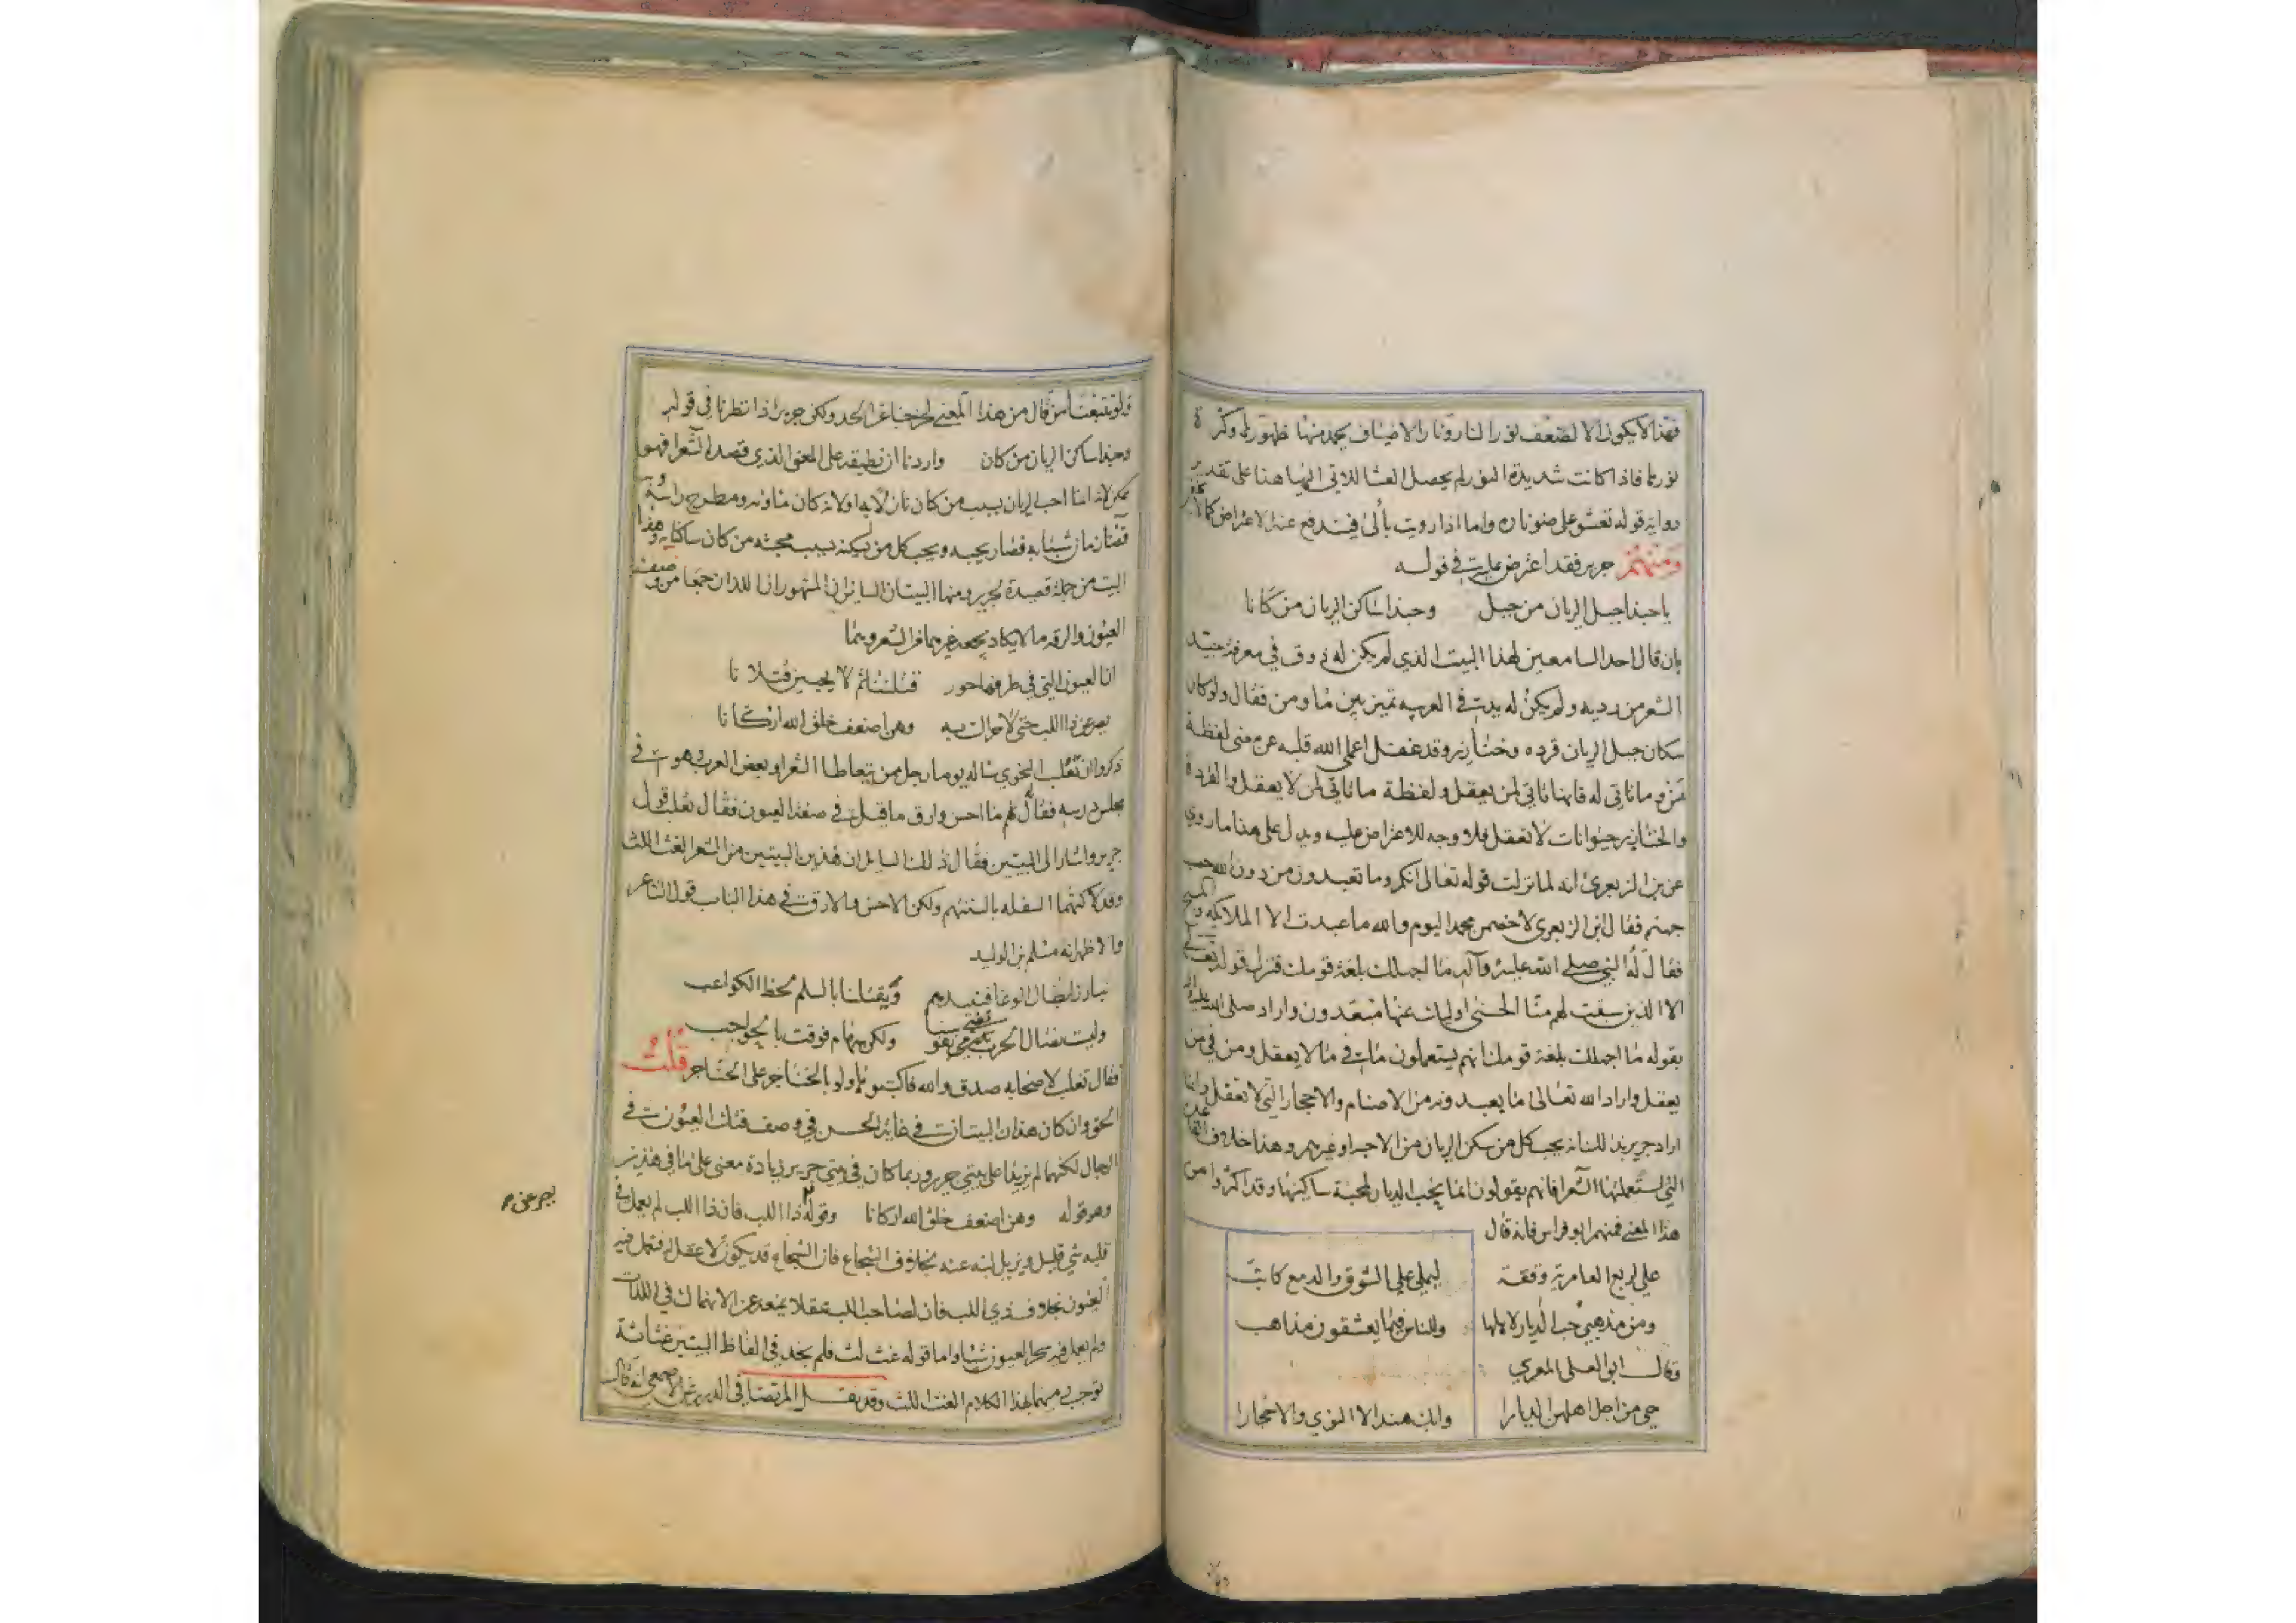 فهذا لا يكون الا لضعف نور النار ونار الاضياف يحمد منها ظهورها وكثرة
نورها فاذا كانت شديدة النور لم يحصل العشا للاتي اليها هنا على تقدير
رواية قوله تعشو على ضو ناره واما اذا رويت بألى فيندفع عنه الاعتراض كما لا يخفى
ومنهم جرير فقد اعترض عليه في قوله
يا حبذا جبل الريان من جبل وحبذا ساكن الريان من كانا
بان قال احد السامعين لهذا البيت الذي لم يكن له ذوق في معرفة جيد
الشعر من رديه ولم يكن له يد في العربيه تميز بين ما ومن فقال ولو كان
سكان جبل الريان قرده وخنازير وقد غفل اعمى الله قلبه عن معنى لفظة
من وما تاتي له فانها تاتي لمن يعقل ولفظة ما تاتي لمن لا يعقل والقردة
والخنازير حيوانات لا تعقل فلا وجه للاعتراض عليه ويدل على هذا ما روي
عن بن الزبعرى انه لما نزلت قوله تعالى انكم وما تعبدون من دون الله حصب
جهنم فقال ابن الزبعرى لاخصمن محمدا اليوم والله ما عبدت الا الملايكه والمسيح
فقال له النبي صلى الله عليه وآله ما اجهلك بلغة قومك فنزل قوله تعالى
الا الذين سبقت لهم منا الحسنى اوليك عنها مبعدون واراد صلى الله عليه واله
بقوله ما اجهلك بلغة قومك انهم يستعملون ما في ما لا يعقل ومن في من
يعقل واراد الله تعالى ما يعبدونه من الاصنام والاحجار التي لا تعقل وانما
اراد جرير بذلك انه يحب كل من سكن الريان من الاحبا وغيرهم وهذا خلاف القاعدة
التي استعملها الشعرا فانهم يقولون انما يحب الديار لمحبة ساكينها وقد اكثروا من
هذا المعنى فمنهم ابو فراس فانه قال
علي لربع العامرية وقفة ليملي علي الشوق والدمع كاتب
ومن مذهبي حب الديار لاهلها وللناس فيما يعشقون مذاهب
وقال ابو العلى المعري
حي من اجل اهلهن الديارا وابك هندا لا النوي والاحجارا
ولو تتبعنا من قال من هذا المعنى لخرجنا عن الحد ولكن جرير اذا نظرنا في قوله
وحبذا ساكن الريان من كان واردنا ان نطبقه على المعنى الذي قصده الشعرا فهو
ممكن لانه انما احب الريان بسبب من كان نازلا به اولا لانه كان ماواه ومطرح راسه وبه
قضا زمان شبابه فصار يحبه ويحب كل من يسكنه بسبب محبته من كان ساكنا به وهذا
البيت من جملة قصيدة لجرير ومنها البيتان السايران المشهوران اللذان جمعا من وصف
العيون والرقه ما لا يكاد يجمعه غيرهما من الشعر وهما
ان العيون التي في طرفها حور قتلننا ثم لا يحيين قتلانا
يصرعن ذا اللب حتى لا حراك به وهن اضعف خلق الله اركانا
ذكروا ان ثعلب النحوي ساله يوما رجل ممن يتعاطا الشعر او بعض العرب وهو في
مجلس درسه فقال لهم ما احسن وارق ما قيل في صفة العيون فقال ثعلب قول
جرير واشار الى البيتين فقال ذلك السايل ان هذين البيتين من الشعر الغث اللث
وقد لاكتهما السفله بالسنتهم ولكن الاحسن والارق في هذا الباب قول الشاعر
والاظهر انه مسلم بن الوليد
نبارز ابطال الوغا فنبيدهم ويقتلنا بالسلم لحظ الكواعب
وليست نصال الحرب تفني نفوسنا ولكن سهام فوقت بالحواجب
فقال ثعلب لاصحابه صدق والله فاكتبوهما ولو بالخناجر على الحناجر قلت
الحق وان كان هذان البيتان في غاية الحسن في وصف فتك العيون في
الرجال لكنهما لم يزيدا على بيتي جرير وربما كان في بيتي جرير زيادة معنى على ما في هذين
وهو قوله وهن اضعف خلق الله اركانا وقوله ذا اللب فان ذا اللب لم يعمل في
يصرعن م
قلبه شي قليل ويزيل لبه عنه بخلاف الشجاع فان الشجاع قد يكون لا عقل له فتعمل فيه
العيون بخلاف ذي اللب فان لصاحب اللب عقلا يمنعه عن الانهماك في اللذات
ولم يعمل فيه سحر العيون شيا واما قوله غث لث فلم نجد في الفاظ البيتين غثاثة
توجب رميهما بهذا الكلام الغث اللث وقد نقل المرتضا في الدرر عن الاصمعي انه قال